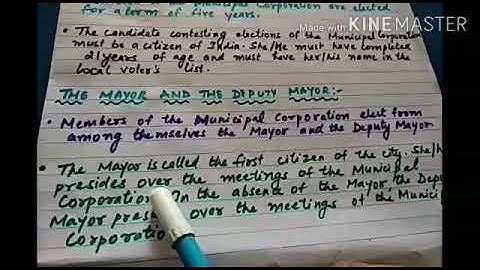 Municipal Corporation are elected
for a term of five years.
Made with KINEMASTER
• The candidate contesting elections of the Municipal Corporation
must be a citizen of India. She/He must have completed
21 years of age and must have her/his name in the
local voter's list.
THE MAYOR AND THE DEPUTY MAYOR:-
• Members of the Municipal Corporation elect from
among themselves the Mayor and the Deputy Mayor
• The Mayor is called the first citizen of the city. She/H
presides over the meetings of the Municipal
Corporation. In the absence of the Mayor, the Dep
Mayor pres over the meetings of the Munici
Corporatio